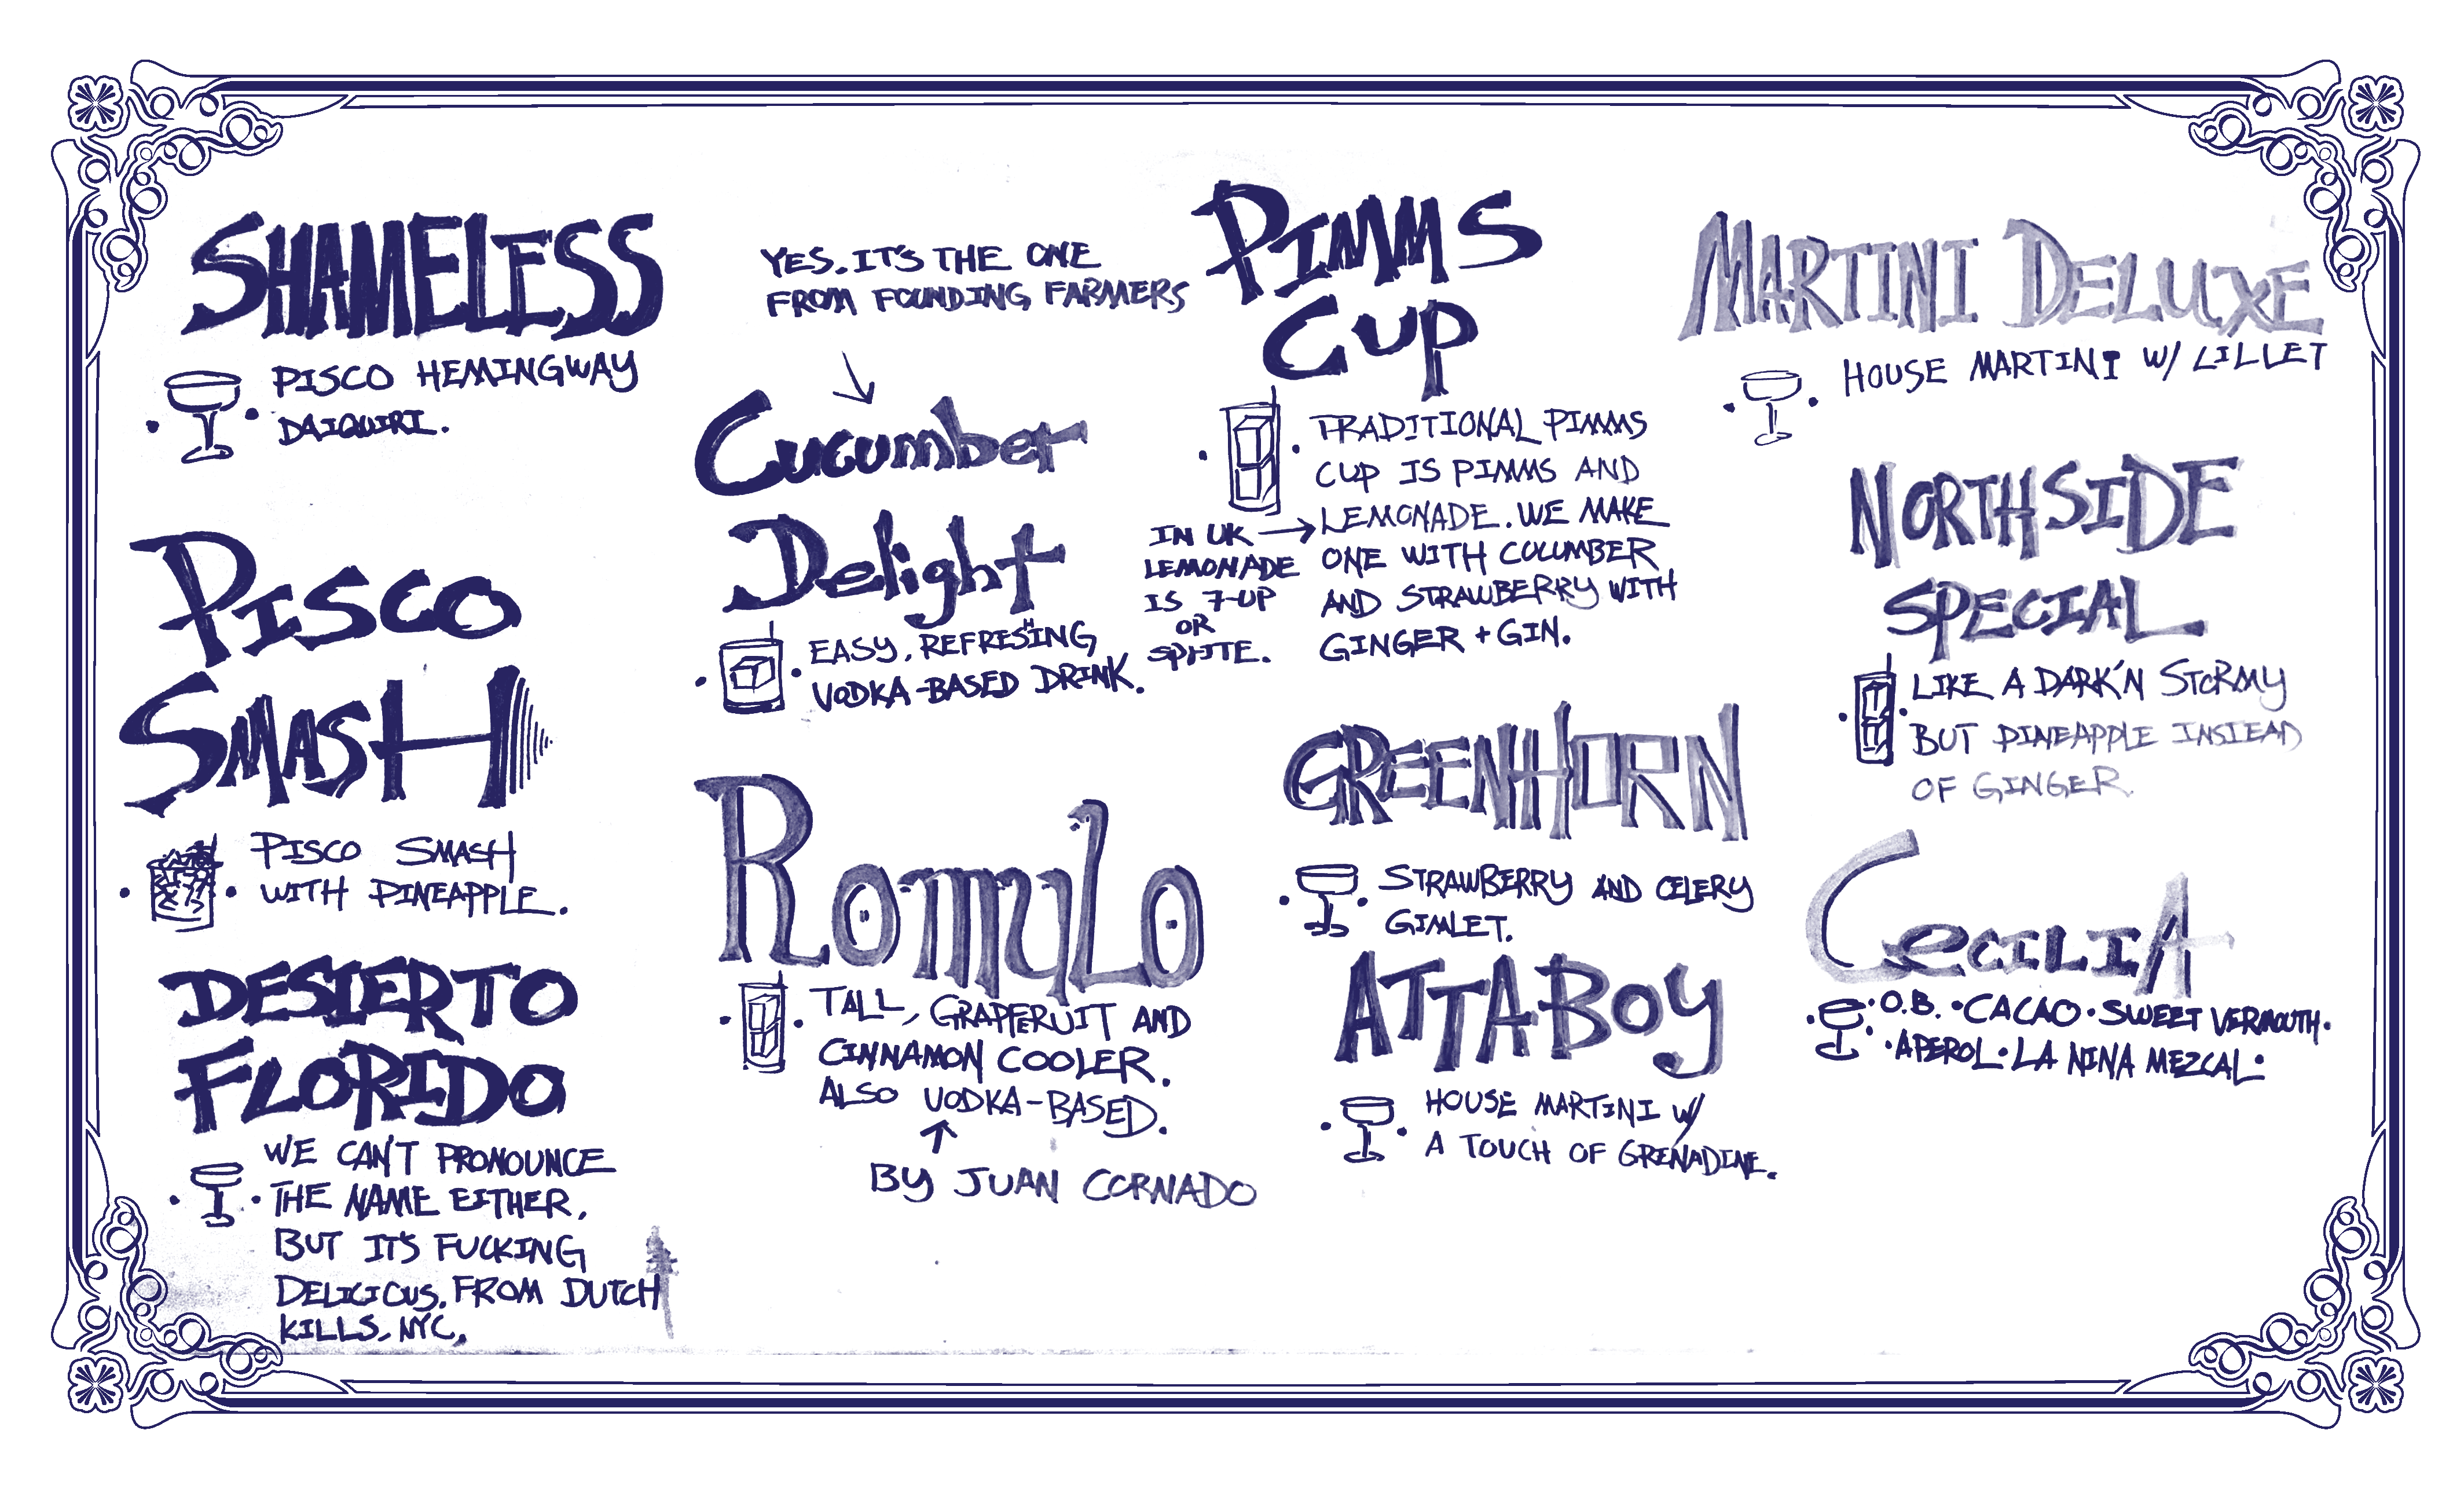 SHAMELESS
PISCO HEMINGWAY
DAIQUIRI.
PISCO
SMASH
PISCO SMASH
WITH PINEAPPLE.
DESIERTO
FLORIDO
WE CAN'T PRONOUNCE
THE NAME EITHER,
BUT IT'S FUCKING
DELICIOUS. FROM DUTCH
KILLS, NYC.
YES. IT'S THE ONE
FROM FOUNDING FARMERS
Cucumber
Delight
EASY, REFRESHING
VODKA-BASED DRINK.
ROMULO
TALL, GRAPFERUIT AND
CINNAMON COOLER.
ALSO VODKA-BASED.
BY JUAN CORNADO
PIMMS
CUP
TRADITIONAL PIMMS
CUP IS PIMMS AND
LEMONADE. WE MAKE
ONE WITH CUCUMBER
AND STRAWBERRY WITH
GINGER + GIN.
IN UK
LEMONADE
IS 7-UP
OR
SPRITE.
GREENHORN
STRAWBERRY AND CELERY
GIMLET.
ATTABOY
HOUSE MARTINI W/
A TOUCH OF GRENADINE.
MARTINI DELUXE
HOUSE MARTINI W/ LILLET
NORTHSIDE
SPECIAL
LIKE A DARK'N STORMY
BUT PINEAPPLE INSTEAD
OF GINGER.
CECILIA
O.B. • CACAO • SWEET VERMOUTH •
• APEROL • LA NINA MEZCAL •